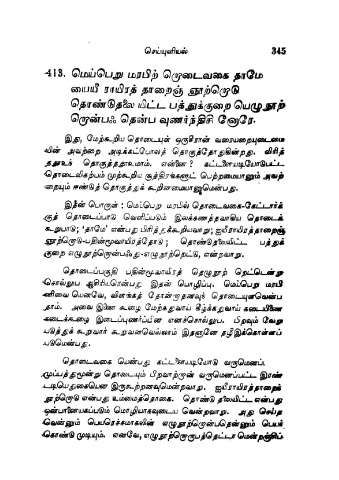 செய்யுளியல் 345
413. மெய்பெறு மரபிற் றொடைவகை தாமே
ஐயீ ராயிரத் தாறைஞ் ஞூற்றொடு
தொண்டுதலை யிட்ட பத்துக்குறை யெழுநூற்
றொன்பஃ தென்ப வுணர்ந்திசி னோரே.
இது, மேற்கூறிய தொடையுள் ஒருசாரன வரையறையுடைமை
யின் அவற்றை அடிக்கட்போலத் தொகுத்தோதுகின்றது. விரித்
ததூஉம் தொகுத்ததூஉமாம். என்னை? கட்டளையடியோடுபட்ட
தொடைவிகற்பம் முற்கூறிய சூத்திரங்களுட் பெற்றமையானும் அவற்
றையும் ஈண்டுத் தொகுத்துக் கூறினமையானுமென்பது.
இதன் பொருள்: மெய்பெறு மரபில் தொடைவகை-கேட்டார்க்
குத் தொடைப்பாடு வெளிப்படும் இலக்கணத்தவாகிய தொடைக்
கூறுபாடு; 'தாமே' என்பது பிரித்துக்கூறியவாறு; ஐயீராயிரத்தாறைஞ்
ஞூற்றொடு-பதின்மூவாயிரத்தோடு; தொண்டுதலையிட்ட பத்துக்
குறை எழுநூற்றொன்பஃது-எழுநூற்றெட்டு, என்றவாறு.
தொடைப்பகுதி பதின்மூவாயிரத் தெழுநூற் றெட்டென்று
சொல்லுப ஆசிரியரென்பது இதன் பொழிப்பு. மெய்பெறு மரபி
னிவை யெனவே, விளங்கத் தோன்றாதனவுந் தொடையுளவென்ப
தாம். அவை இணை கூழை மேற்கதுவாய் கீழ்க்கதுவாய் கடையிணை
கடைக்கூழை இடைப்புணர்ப்பென எனச்சொல்லுப. பிறவும் வேறு
படுத்துக் கூறுவார் கூறுவனவெல்லாம் இதனானே தழீஇக்கொள்ளப்
படுமென்பது.
தொடைவகை யென்பது கட்டளையடியோடு வருமெனப்
முப்பத்மூன்று தொடையும் பிறவாற்றான் வருமெனப்பட்ட இரண்
டடியெதுகையென இருகூற்றனவுமென்றவாறு. ஐயீராயிரத்தாறைஞ்
ஞூற்றொடு என்பது உம்மைத்தொகை. தொண்டு தலையிட்ட என்பது
ஒன்பானையகப்படும் மொழியாகவுடைய வென்றவாறு. அது செய்த
வென்னும் பெயரெச்சமாகலின் எழுநூற்றொன்பதென்னும் பெயர்
கொண்டு முடியும். எனவே, எழுநூற்றொருபத்தெட்டா மென்றஞ்சிப்